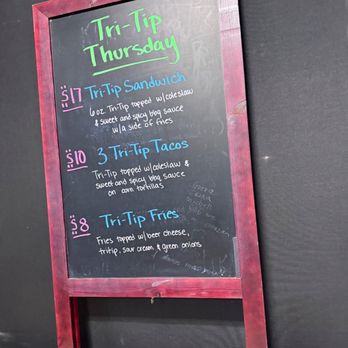 Tri-Tip
Thursday
$17 Tri-Tip Sandwich
6oz Tri-Tip topped w/coleslaw
& sweet and spicy bbq sauce
w/a side of fries
$10 3 Tri-Tip Tacos
Tri-Tip topped w/coleslaw &
sweet and spicy bbq sauce
on corn tortillas
$8 Tri-Tip Fries
Fries topped w/beer cheese,
tritip, sour cream & green onions